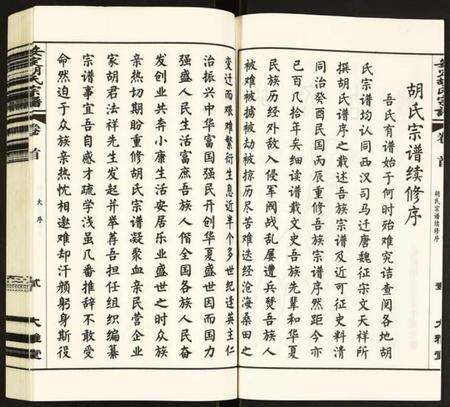 胡氏宗谱续修序
吾氏有谱始于何时殆难究诘查阅各地胡
氏宗谱均认同西汉司马迁唐魏征宋文天祥所
撰胡氏谱序之载述吾族宗谱及近可征史料清
同治癸酉民国丙辰重修吾族宗谱序然距今亦
已百几拾年矣细读谱载文史吾族先辈和华夏
民族历经外敌入侵军阀战乱屡遭兵燹吾族人
被难被掳被劫被掠历尽苦难迭经沧海桑田之
变迁而艰难繁衍生息近半个多世纪逢英主仁
治振兴中华富国强民开创华夏盛世因而国力
强盛人民生活富庶吾族人偕全国各族人民奋
发创业共奔小康生活安居乐业盛世之时众族
亲热切期盼重修胡氏宗谱凝聚血亲民营企业
家胡君法祥先生发起并举荐吾担任组织编纂
宗谱事宜吾自感才疏学浅虽几番推辞不敢受
命然迫于众族亲热忱相邀难却汗颜躬身斯役
安定胡氏宗谱
卷首
大序
贰
大雅堂
卷首
胡氏宗谱续修序
壹
大雅堂